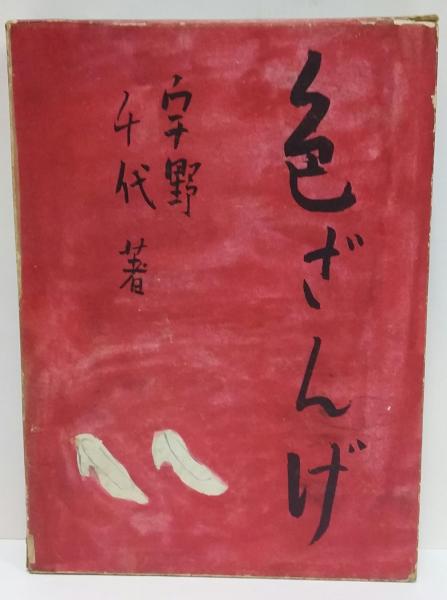 色ざんげ
宇野
千代 著